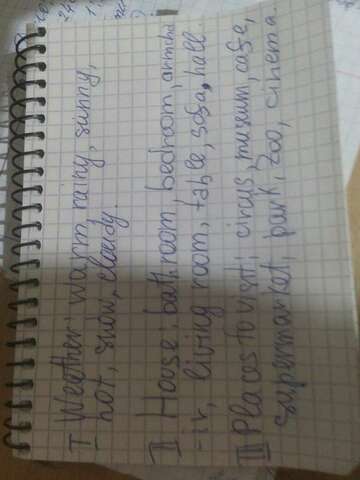 I Weather: warm, rainy, sunny,
hot, snow, cloudy.
II House: bathroom, bedroom, armcha
-ir, living room, table, sofa, hall
III Places to visit: circus, museum, cafe,
supermarket, park, zoo, cinema.